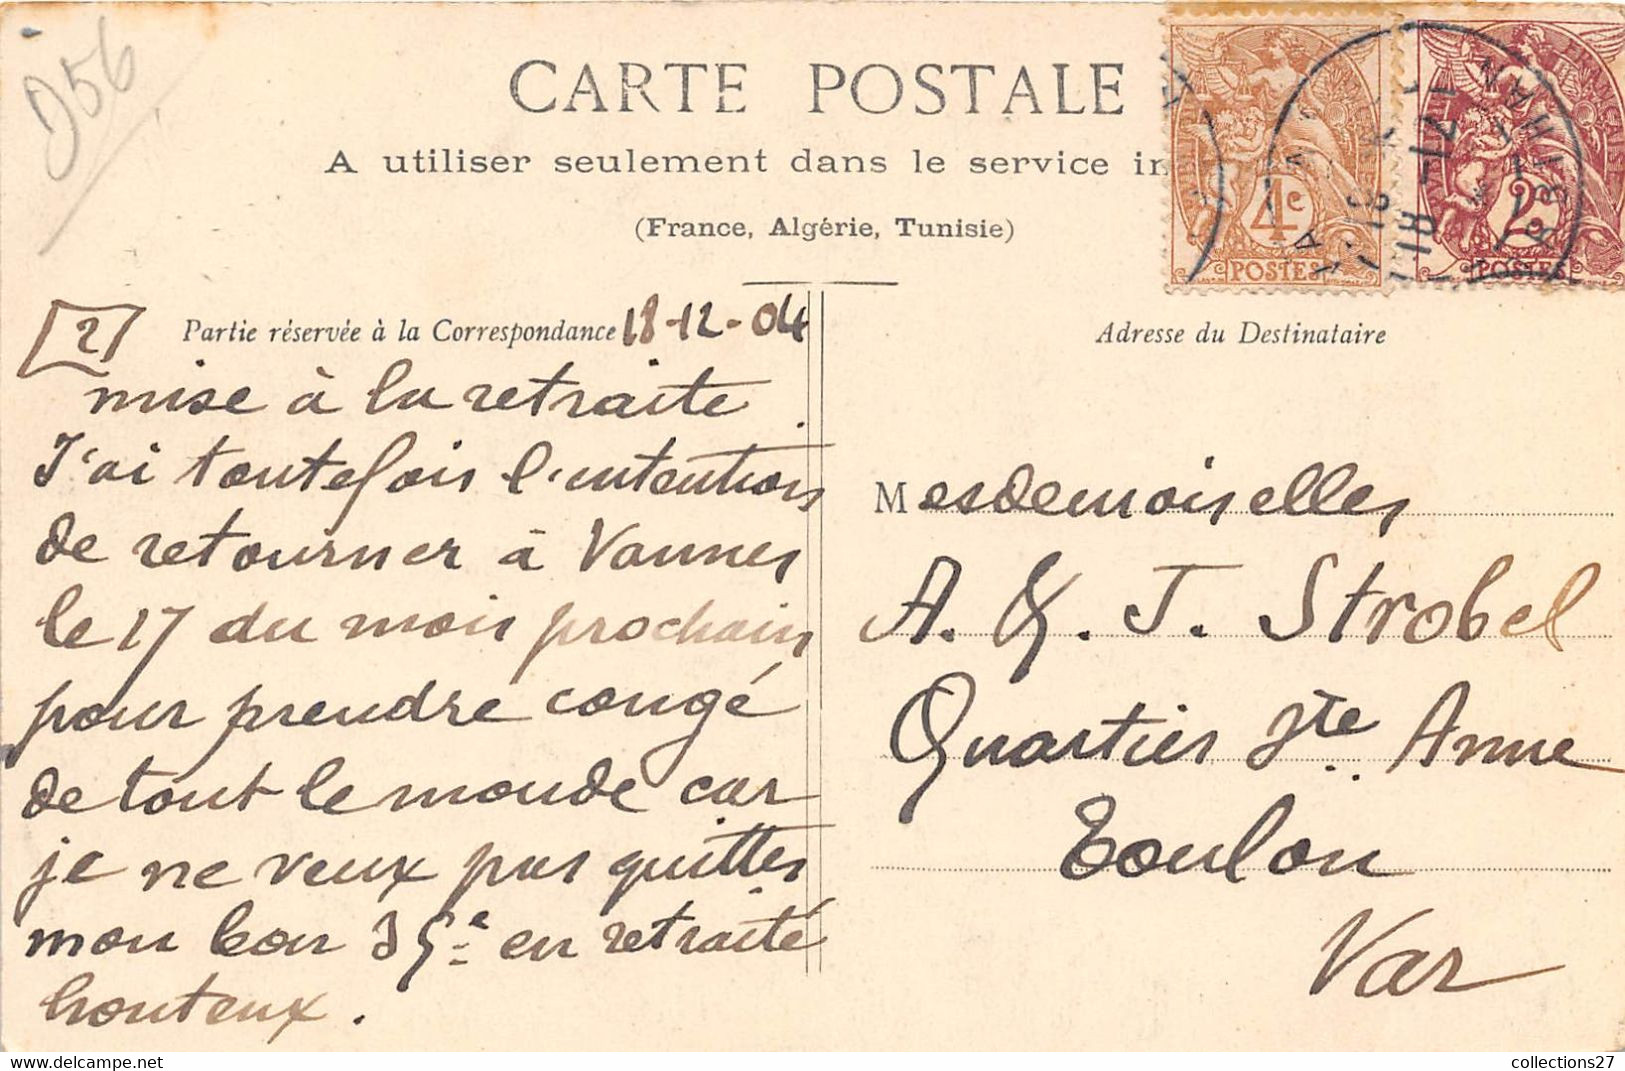 D56
CARTE POSTALE
A utiliser seulement dans le service in
(France, Algérie, Tunisie)
4c
POSTES
2c
POSTES
18-12
MORBIHAN
2
Partie réservée à la Correspondance 18-12-04
Adresse du Destinataire
mise à la retraite.
J'ai toutefois l'intention
de retourner à Vannes
le 17 du mois prochain
pour prendre congé
de tout le monde car
je ne veux pas quitter
mon bon 35e en retraité
honteux.
Mesdemoiselles
A. & J. Strobel
Quartier Ste Anne
Toulon
Var
collections27